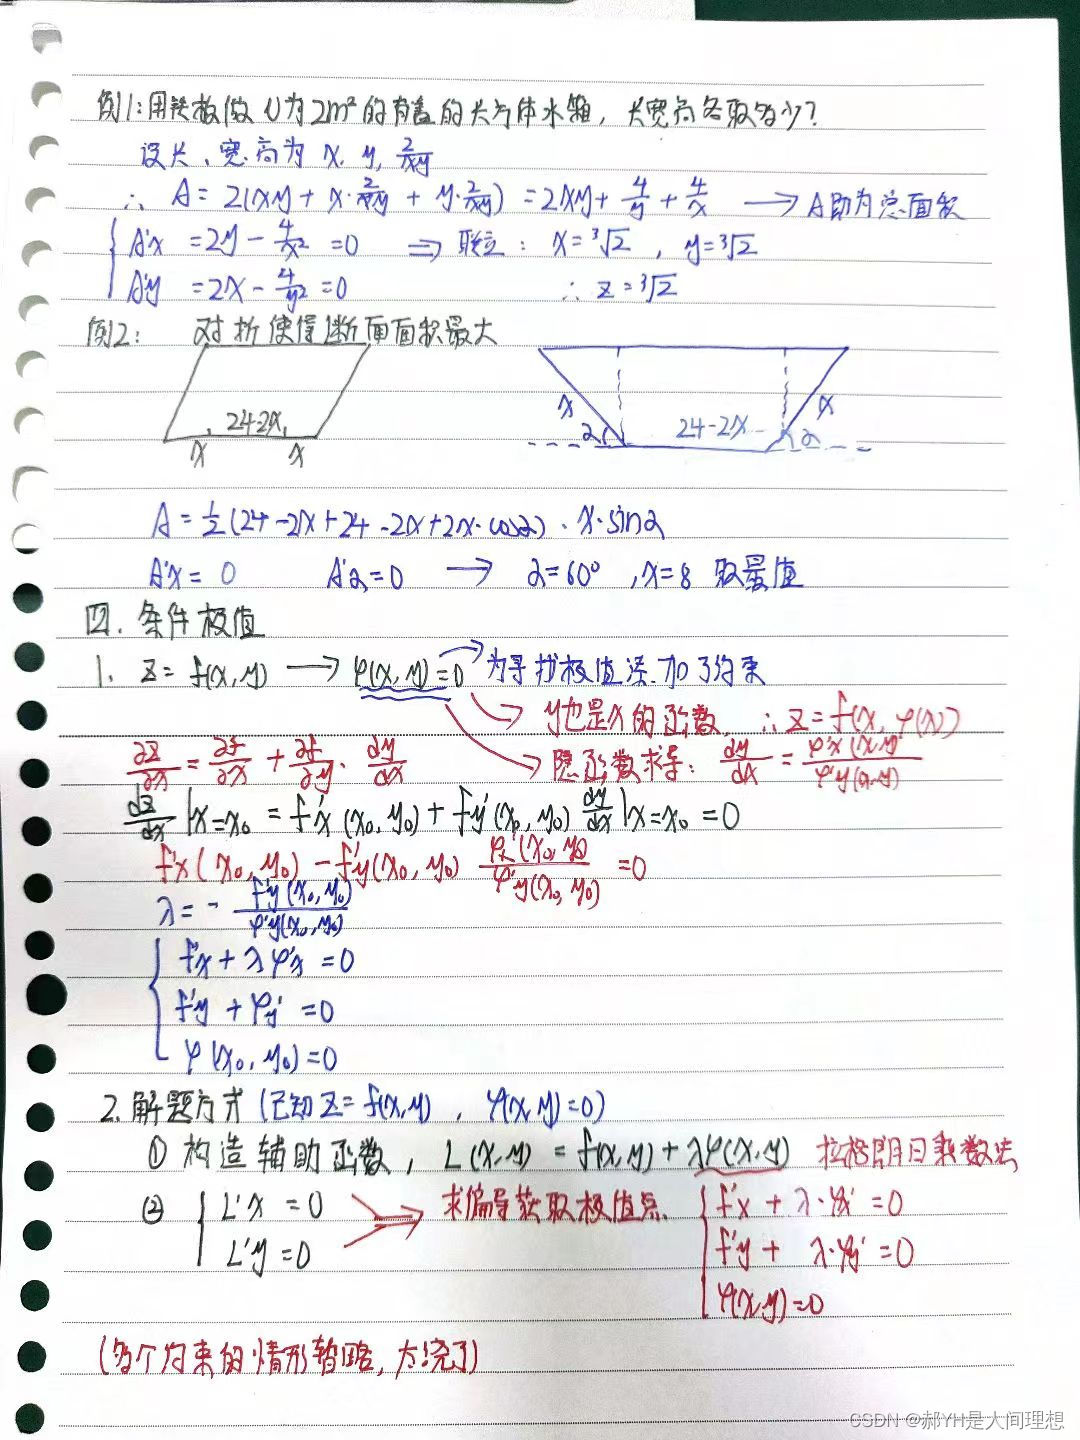 例1:用铁板做 V为2m²的有盖的长方体水箱，长宽高各取多少?
设长、宽、高为 x, y, 2/xy
∴ A = 2(xy + x·2/xy + y·2/xy) = 2xy + 4/y + 4/x → A即为总面积
A'x = 2y - 4/x² = 0 ⇒ 联立: x = ³√2, y = ³√2
A'y = 2x - 4/y² = 0 ∴ z = ³√2
例2: 对折使得断面面积最大
24-2x
x x
x 24-2x x
α α
A = 1/2(24-2x+24-2x+2x·cosα)·x·sinα
A'x = 0 A'α = 0 → α = 60°, x = 8 取最值
四. 条件极值
1. z = f(x, y) → φ(x, y) = 0 为寻找极值添加了约束
y也是x的函数 ∴ z = f(x, φ(x))
∂z/∂x = ∂f/∂x + ∂f/∂y · dy/dx 隐函数求导: dy/dx = φ'x(x,y)/φ'y(x,y)
dz/dx |x=x₀ = f'x(x₀, y₀) + fy'(x₀, y₀) dy/dx |x=x₀ = 0
f'x(x₀, y₀) - f'y(x₀, y₀) φx'(x₀, y₀)/φ'y(x₀, y₀) = 0
λ = - f'y(x₀, y₀)/φ'y(x₀, y₀)
f'x + λφ'x = 0
f'y + φy' = 0
φ(x₀, y₀) = 0
2. 解题方式 (已知 z = f(x,y), φ(x,y)=0)
① 构造辅助函数, L(x,y) = f(x,y) + λφ(x,y) 拉格朗日乘数法
② L'x = 0 求偏导获取极值点. f'x + λ·φx' = 0
L'y = 0 f'y + λ·φy' = 0
φ(x,y) = 0
(多个约束的情形暂略, 太浇了)
CSDN @郝YH是人间理想